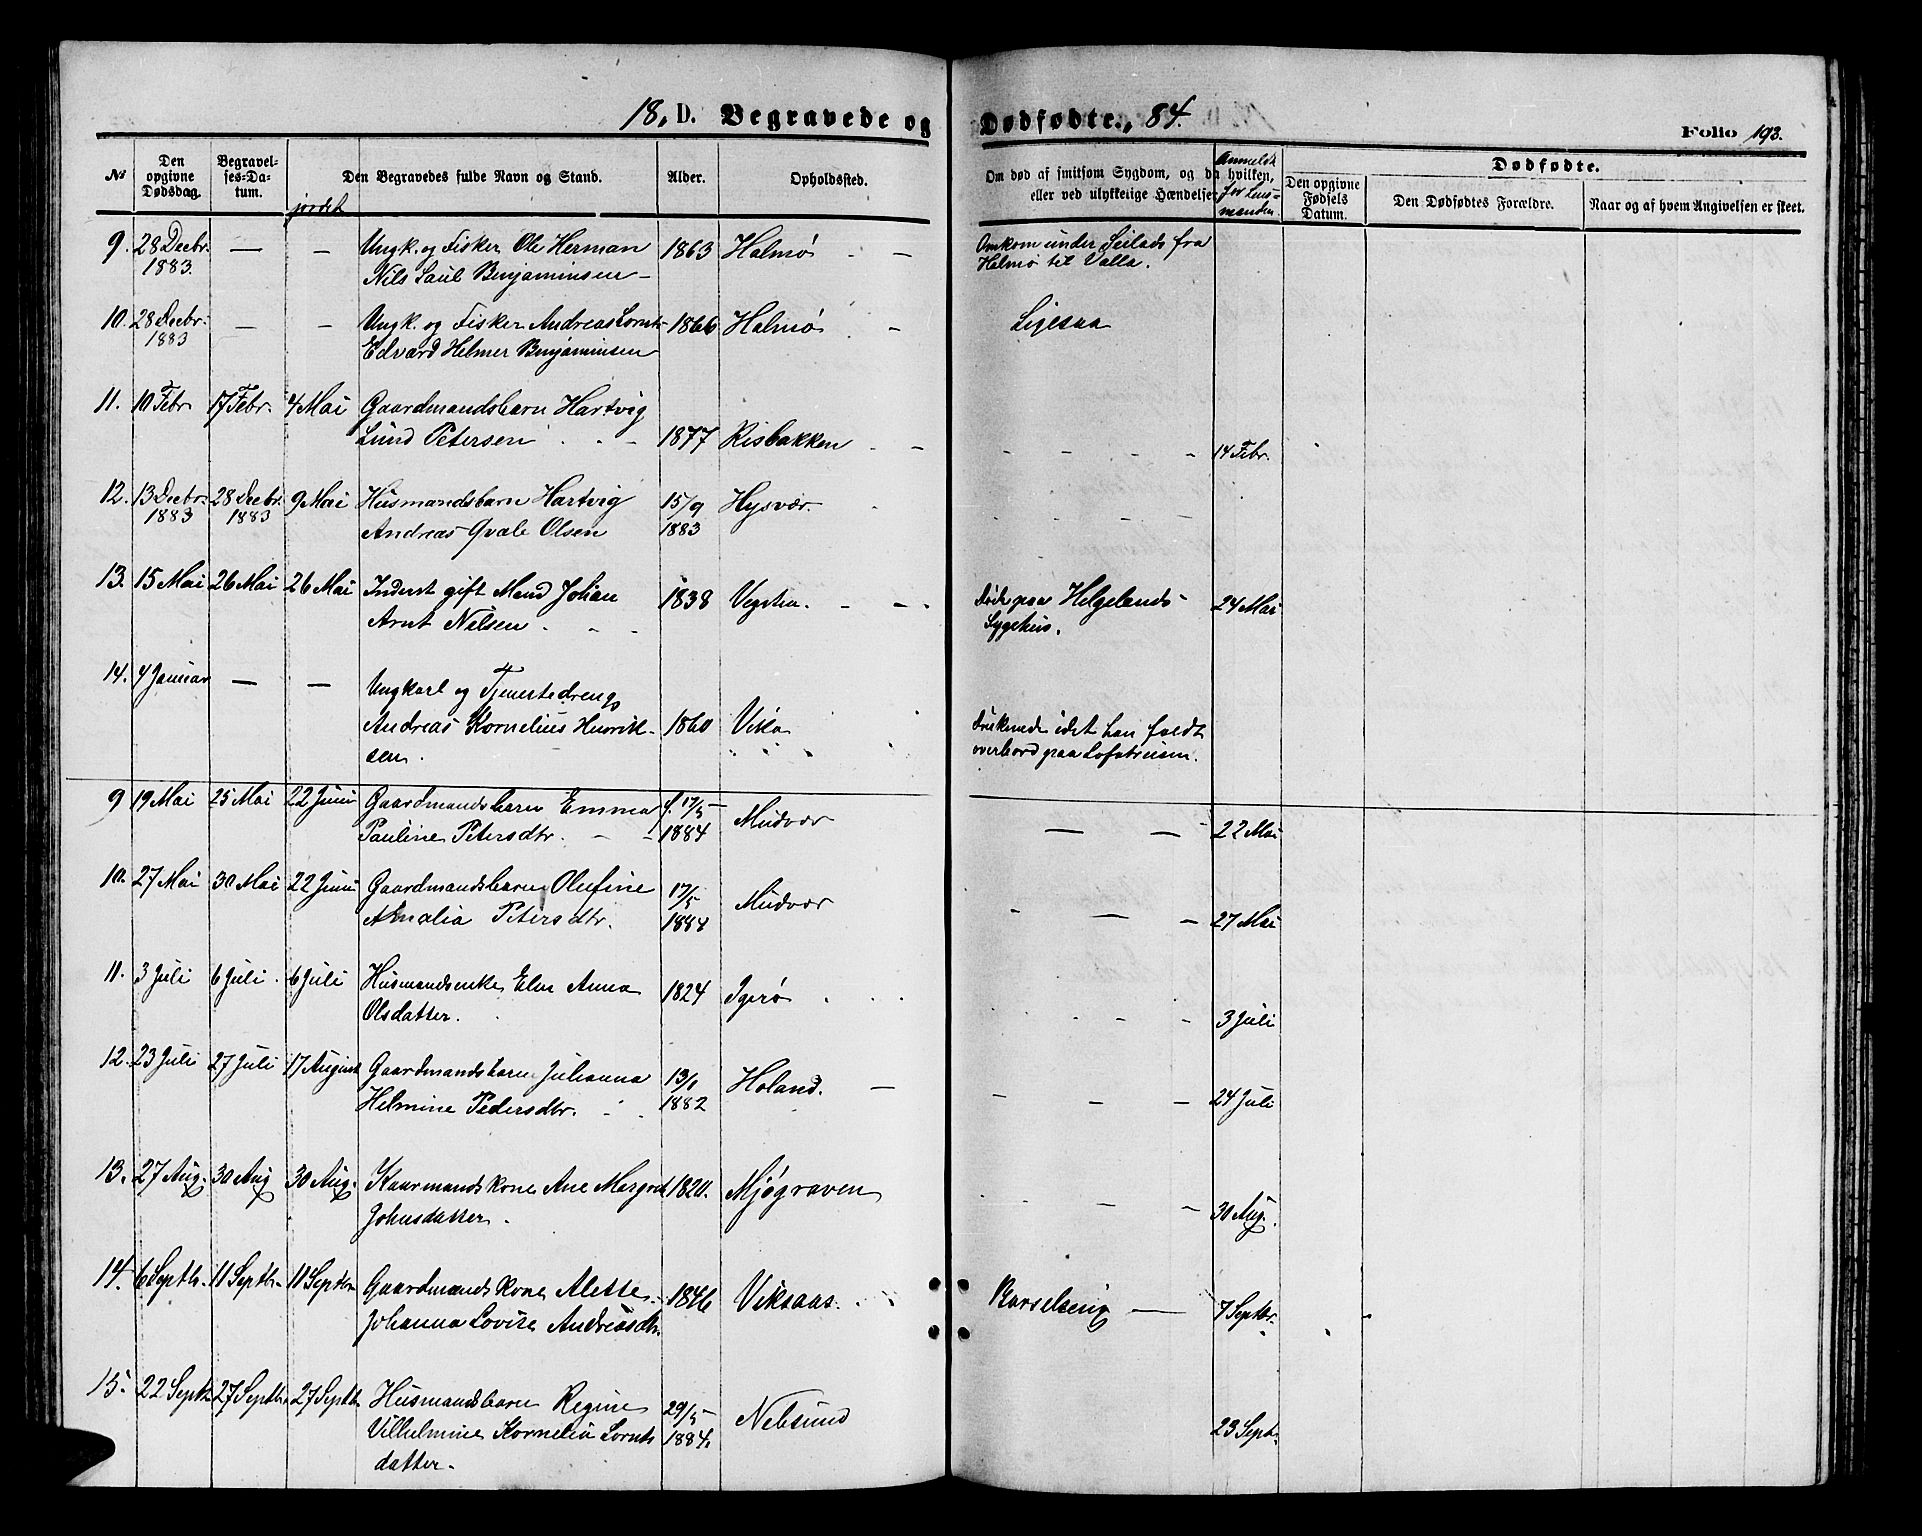 18, D. Begravede og Dødfødte., 84.
Folio 193.
№
Den opgivne Dødsdag.
Begravelses-Datum.
jordet
Den Begravedes fulde Navn og Stand.
Alder.
Opholdssted.
Om død af smitsom Sygdom, og da hvilken,
eller ved ulykkelige Hændelser.
Anmeldt for Lensmanden
Dødfødte.
Den opgivne Fødsels Datum.
Den Dødfødtes Forældre.
Naar og af hvem Angivelsen er skeet.
9. 28 Decbr. — — Ungk. og Fisker Ole Herman 1863 Halmø - - Omkom under Seilads fra
1883. Nils Saul Benjaminsen — Helmø til Valla.
10. 28 Decbr. — — Ungk. og Fisker Andreas Lornts 1866 Halmø - Ligesaa
1883 Edvard Helmer Benjaminsen
11. 10 Febr 17 Febr. 4 Mai Gaardmandsbarn Hartvig
Lund Petersen 1877 Risbakken - - 14 Febr.
12. 13 Decbr. 28 Decbr. 9 Mai Husmandsbarn Hartvig 15/9 Hysvær.
1883 1883 Andreas Qvale Olsen 1883
13. 15 Mai 26 Mai 26 Mai Inderst gift Mand Johan 1838 Vegsten. - - Døde paa Helgelands 24 Mai
Arnt Nilsen. Sygehus.
14. 4 Januar — — Ungkarl og Tjenestedreng
Andreas Kornelius Henrik- 1860 Vika druknede idet han faldt
sen. overbord paa Lofotreisen.
9 19 Mai 25 Mai 22 Juni Gaardmandsbarn Emma f. 17/5 Mudvær — — 22 Mai
Pauline Petersdtr. 1884
10. 27 Mai 30 Mai 22 Juni Gaardmandsbarn Olufine 17/5 Mudvær - — - 27 Mai
Amalia Petersdtr. 1884
11. 3 Juli 6 Juli. 6 Juli Husmandsenke Elen Anna 1824 Igerø
Olsdatter. 3 Juli
12. 23 Juli 27 Juli 17 August Gaardmandsbarn Julianna 13/1 Holand. —
Helmine Pedersdtr. 1882 - - - 24 Juli
13. 27 Aug. 30 Aug 30 Aug. Kaarmandskone Ane Margret 1820. Mjøgraven
Johnsdatter. 30 Aug.
14. 6 Septbr. 11 Septbr 11 Septbr Gaardmandskone Alette 1846 Viksaas. Barselseng — 7 Septbr.
Johanna Lovise Andreasdtr.
15. 22 Septbr 27 Septbr 27 Septbr Husmandsbarn Regine 29/5 Nebsund 23 Septr.
Vilhelmine Kornelia Lornts 1884.
datter.